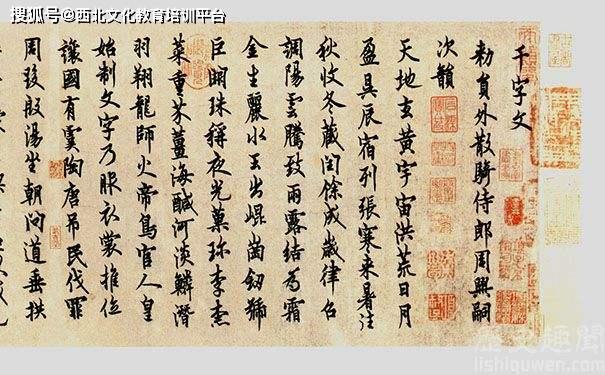 搜狐号@西北文化教育培训平台
千字文
勑員外散騎侍郎周興嗣
次韻
天地玄黃宇宙洪荒日月
盈昃辰宿列張寒来暑往
秋收冬藏閏餘成歲律召
調陽雲騰致雨露結為霜
金生麗水玉出崐崗劒號
巨闕珠稱夜光菓珍李柰
菜重芥薑海鹹河淡鱗潛
羽翔龍師火帝鳥官人皇
始制文字乃服衣裳推位
讓國有虞陶唐吊民伐罪
周發殷湯坐朝問道垂拱
歷史趣聞
lishiquwen.com